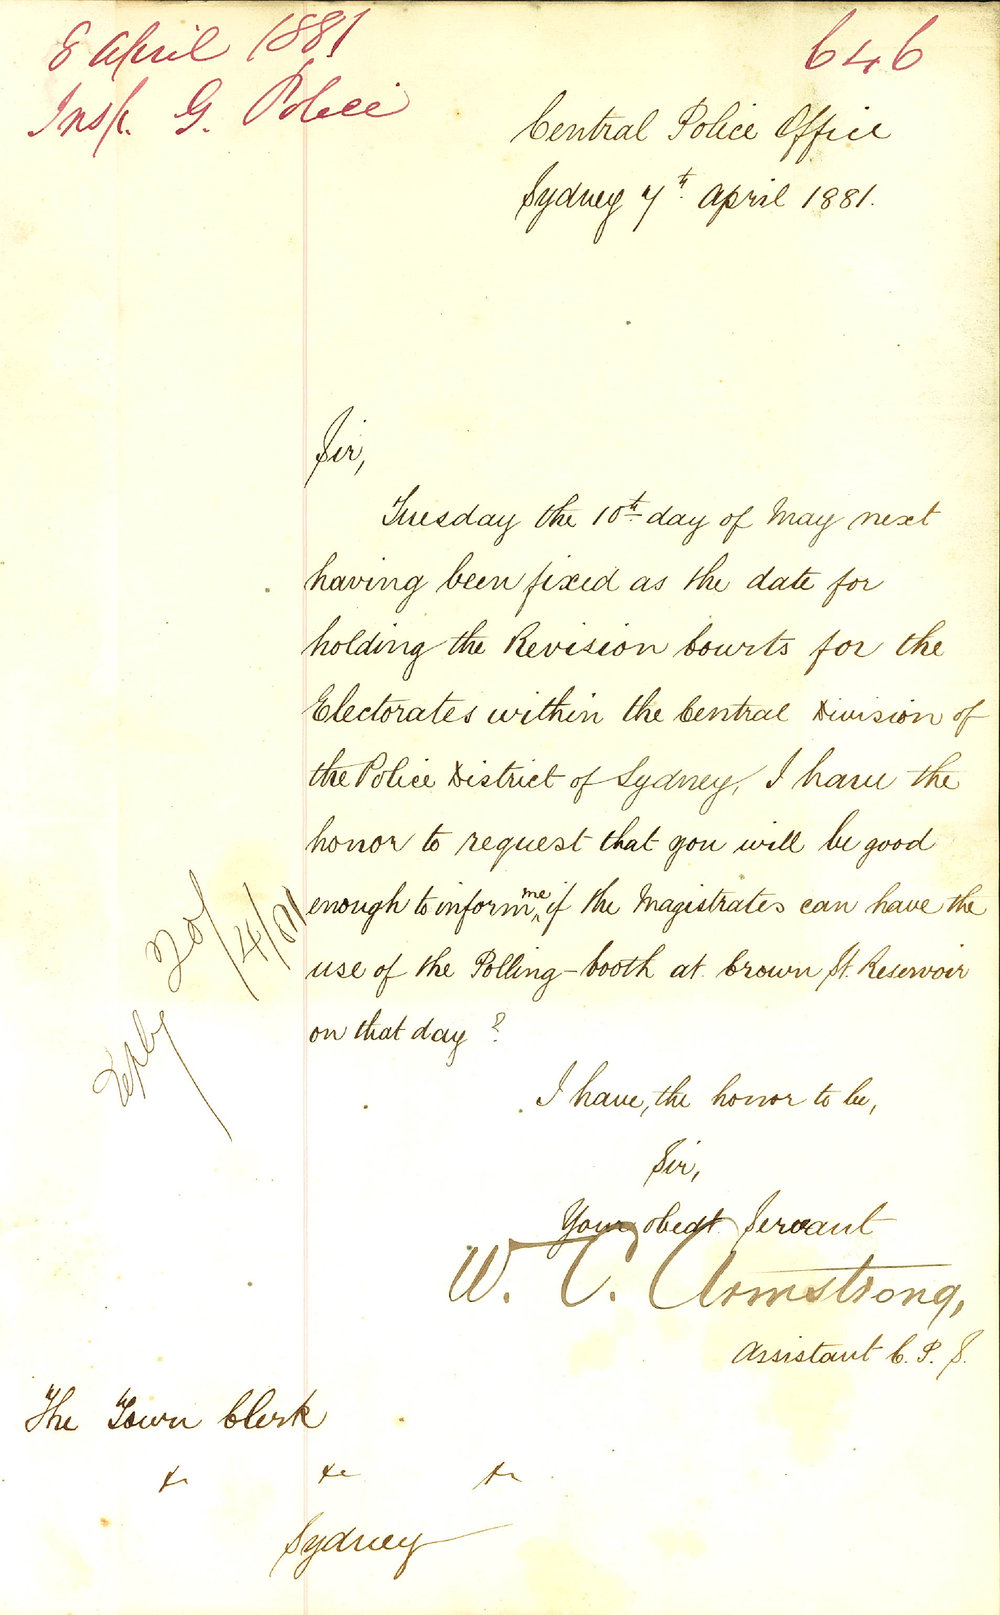 8 April 1881
646
Insp. G. Police
Central Police Office
Sydney 7th April 1881.
Sir,
Tuesday the 10th day of May next
having been fixed as the date for
holding the Revision Courts for the
Electorates within the Central Division of
the Police District of Sydney, I have the
honor to request that you will be good
enough to inform me if the Magistrates can have the
use of the Polling-booth at Crown St. Reservoir
on that day?
Reply 20/4/81
I have, the honor to be,
Sir,
Your obedt Servant
W. C. Armstrong,
Assistant C. P. S.
The Town Clerk
&c &c &c
Sydney